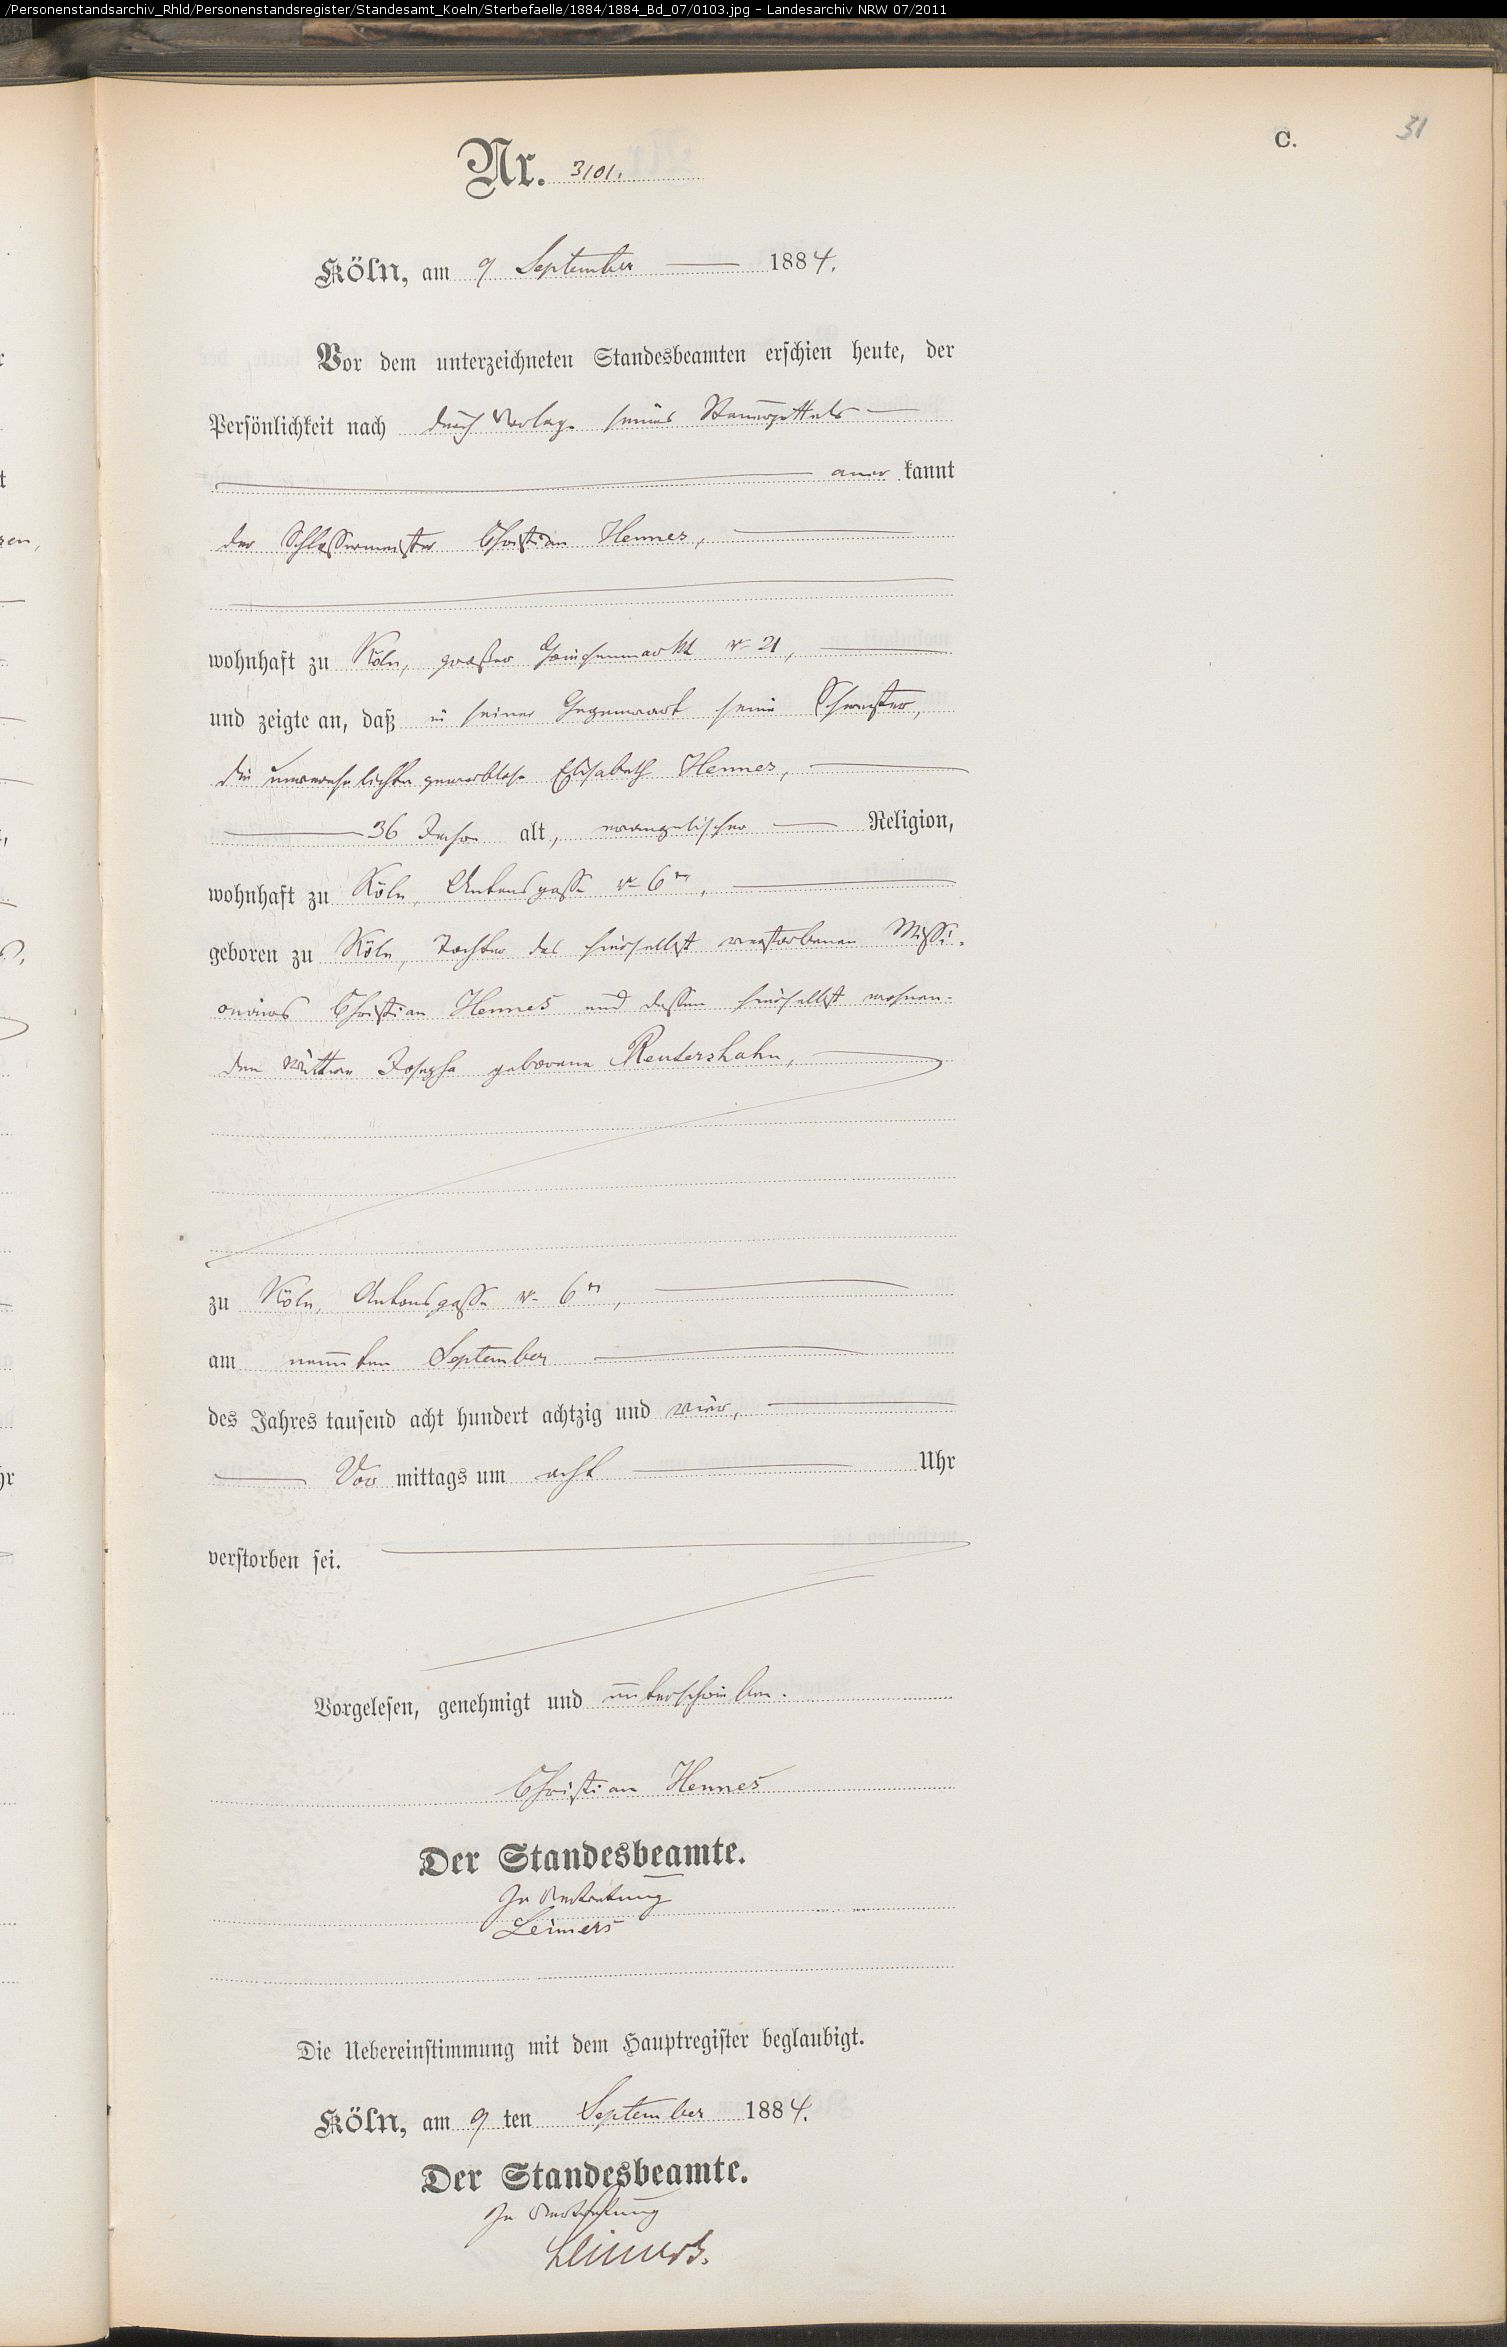 /Personenstandsarchiv_Rhld/Personenstandsregister/Standesamt_Koeln/Sterbefaelle/1884/1884_Bd_07/0103.jpg - Landesarchiv NRW 07/2011
C.
31
Nr. 3101.
Köln, am 9 September 1884.
Vor dem unterzeichneten Standesbeamten erschien heute, der
Persönlichkeit nach durch Vorlage seines Steuerzettels
aner kannt
der Schlossermeister Christian Hennes,
wohnhaft zu Köln, großer Griechenmarkt № 21,
und zeigte an, daß in seiner Gegenwart seine Schwester,
die unverehelichte gewerblose Elisabeth Hennes,
36 Jahre alt, evangelischer Religion,
wohnhaft zu Köln, Antonsgasse № 6
geboren zu Köln, Tochter des hierselbst verstorbenen Missi-
onairs Christian Hennes und dessen hierselbst wohnen-
den Wittwe Josepha geborene Reutershahn,
zu Köln, Antonsgasse № 6
am neunten September
des Jahres tausend acht hundert achtzig und vier,
Vor mittags um acht Uhr
verstorben sei.
Vorgelesen, genehmigt und unterschrieben.
Christian Hennes
Der Standesbeamte.
In Vertretung
Leimers
Die Uebereinstimmung mit dem Hauptregister beglaubigt.
Köln, am 9 ten September 1884.
Der Standesbeamte.
In Vertretung
Leimers.